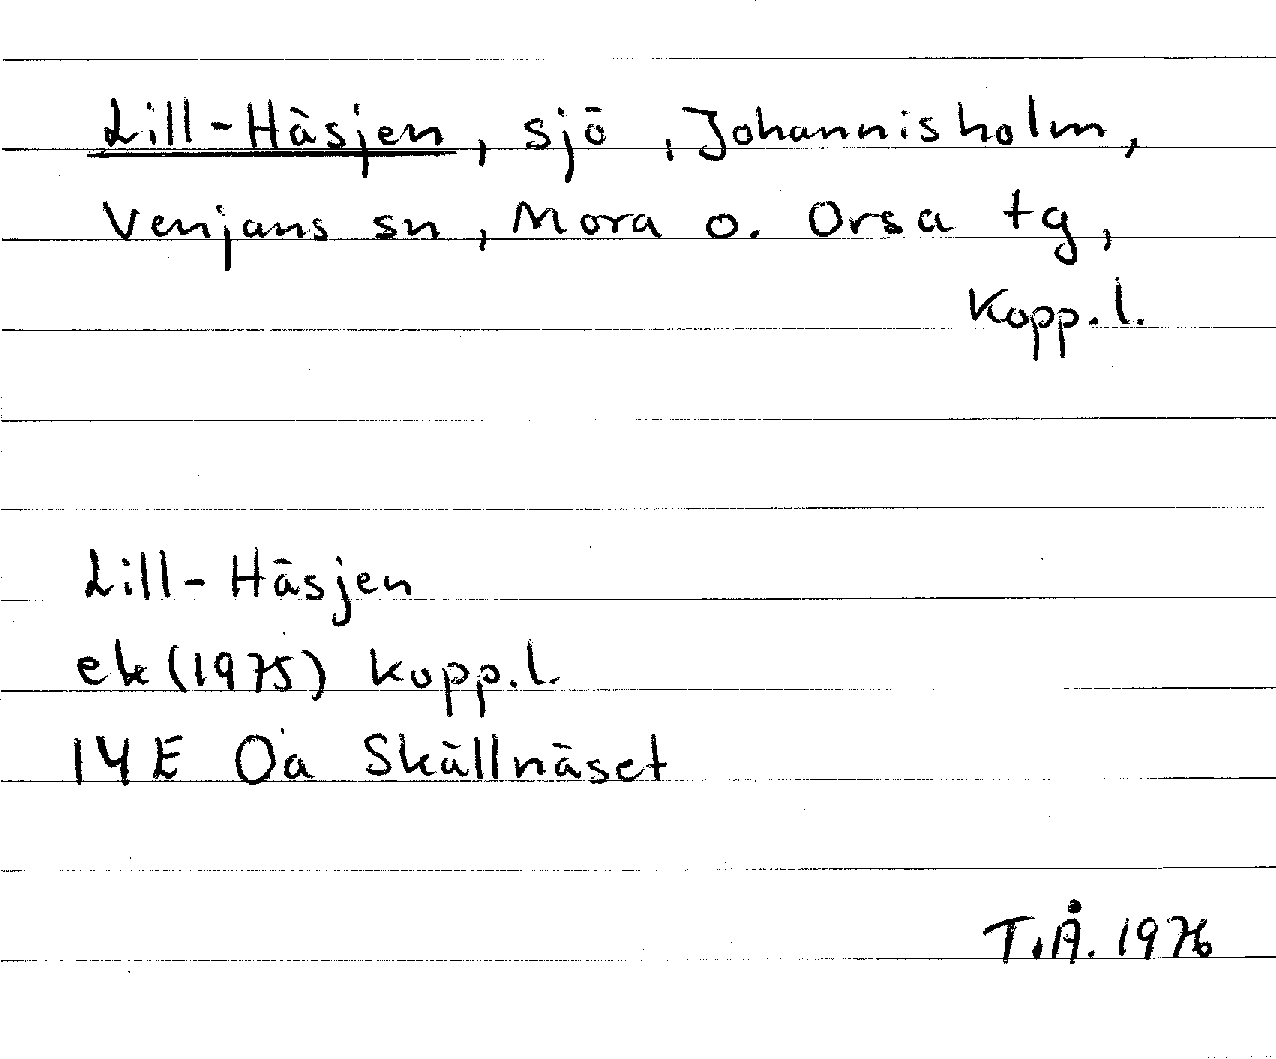 Lill-Häsjen, sjö, Johannisholm,
Venjans sn, Mora o. Orsa tg,
Kopp.l.
Lill-Häsjen
ek (1975) Kopp.l.
14E 0a Skällnäset
T.Å. 1976